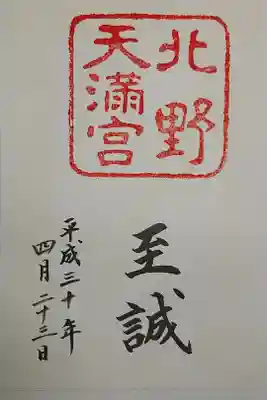 北野
天満宮
至誠
平成三十年
四月二十三日